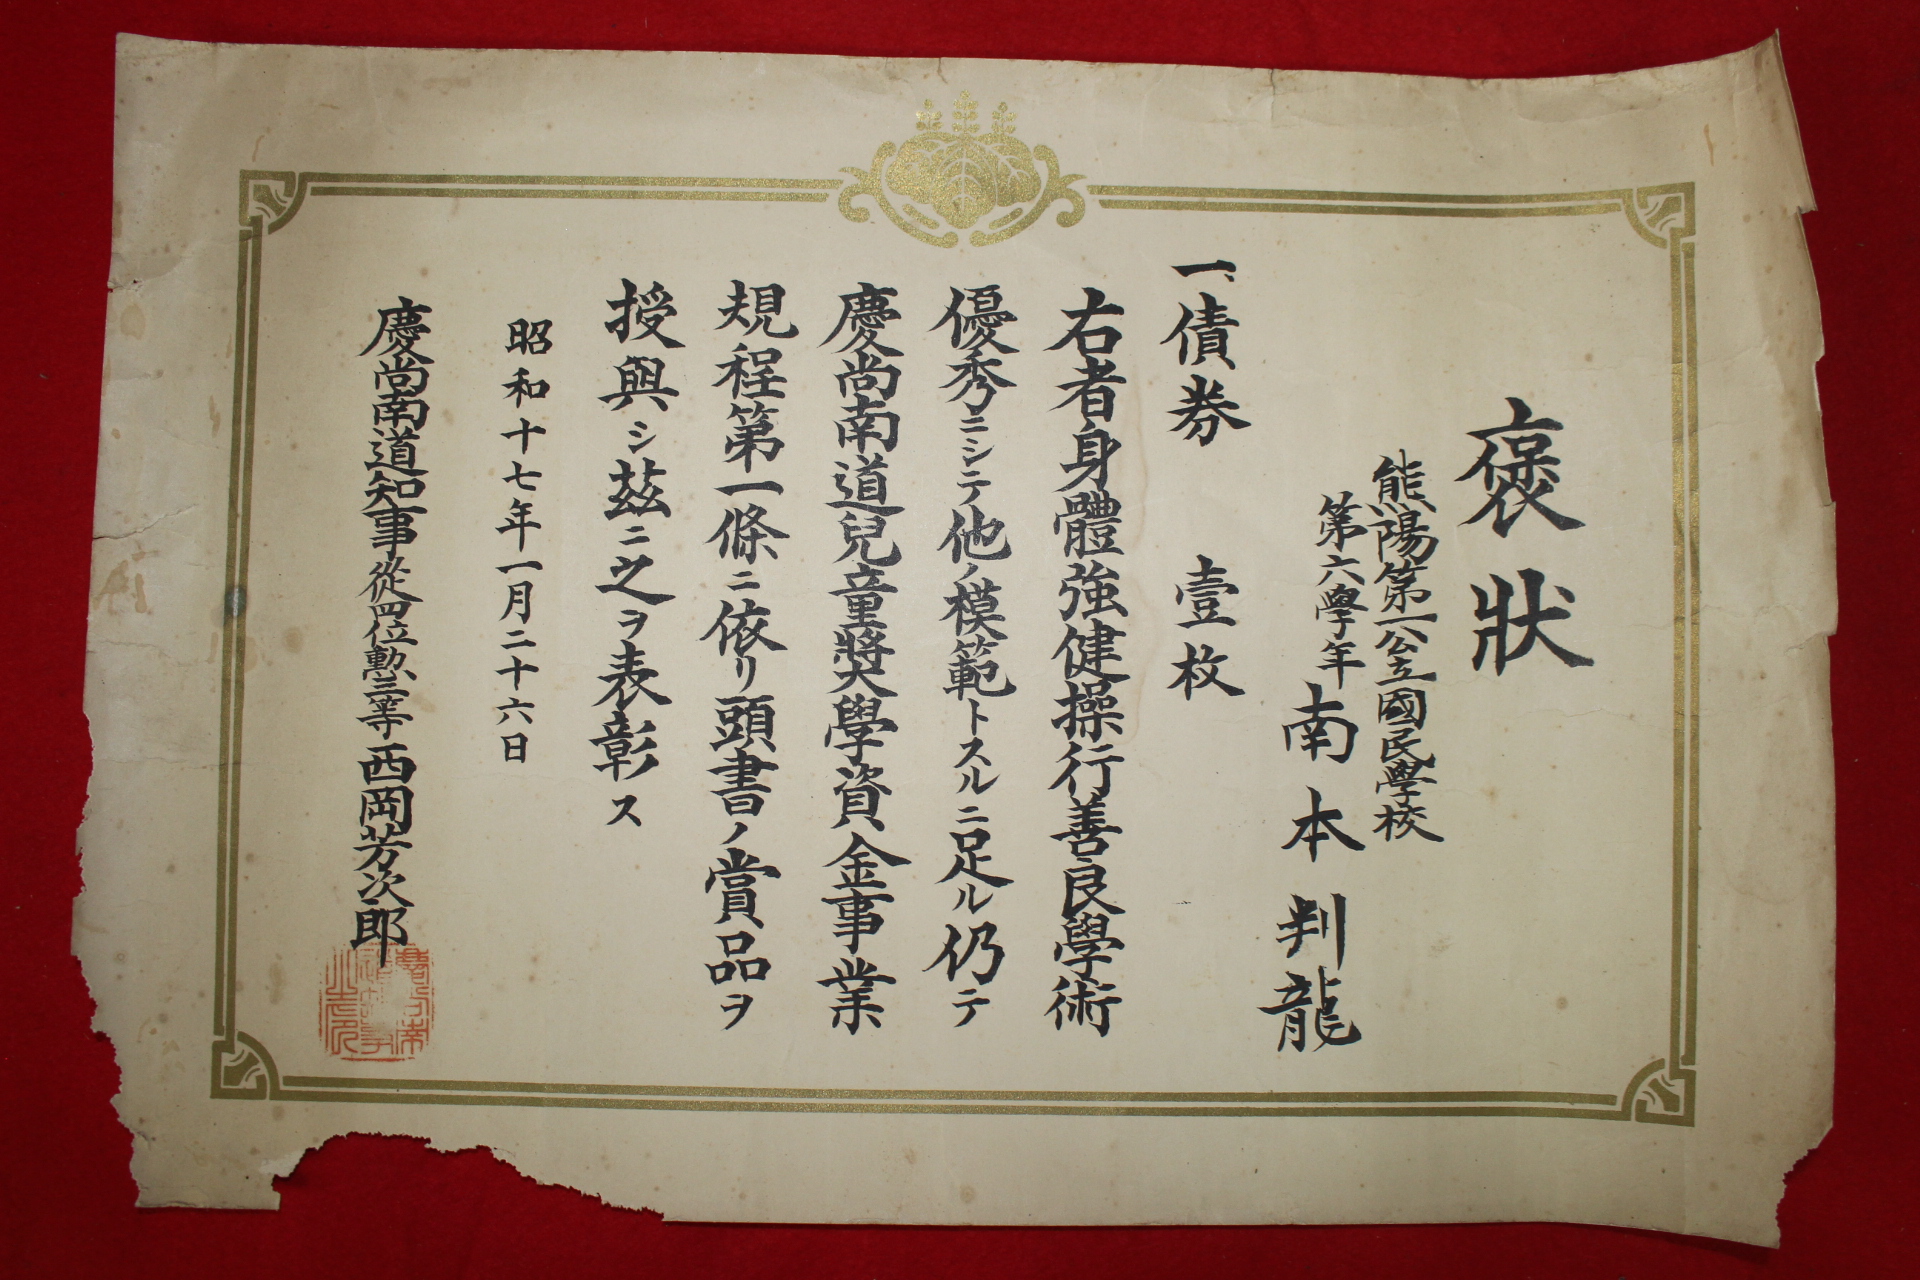 褒狀
熊陽第一公立國民學校
第六學年 南本判龍
一、債券 壹枚
右者身體強健操行善良學術
優秀ニシテ他ノ模範トスルニ足ル仍テ
慶尚南道兒童獎學資金事業
規程第一條ニ依リ頭書ノ賞品ヲ
授與シ茲ニ之ヲ表彰ス
昭和十七年一月二十六日
慶尚南道知事從四位勲三等西岡芳次郎